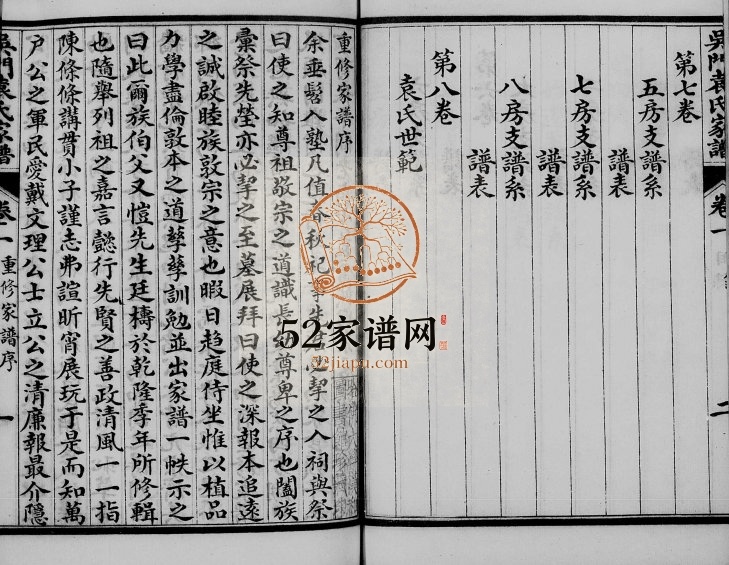 吳門袁氏家譜 卷一 二
第七卷
五房支譜系
譜表
七房支譜系
譜表
八房支譜系
譜表
第八卷
袁氏世範
重修家譜序
余垂髫入塾凡值春秋祀 必挈之入祠與祭
曰使之知尊祖敬宗之道識長幼尊卑之序也闔族
彙祭先塋亦必挈之至墓展拜曰使之深報本追遠
之誠啟睦族敦宗之意也暇日趋庭侍坐惟以植品
力學盡倫敦本之道孳孳訓勉並出家譜一帙示之
曰此爾族伯父又愷先生廷檮於乾隆季年所修輯
也隨舉列祖之嘉言懿行先賢之善政清風一一指
陳條條講貫小子謹志弗諠昕宵展玩于是而知萬
戶公之軍民愛戴文理公士立公之清廉報最介隱
吳門袁氏家譜 卷一 重修家譜序 一
52家谱网
52jiapu.com